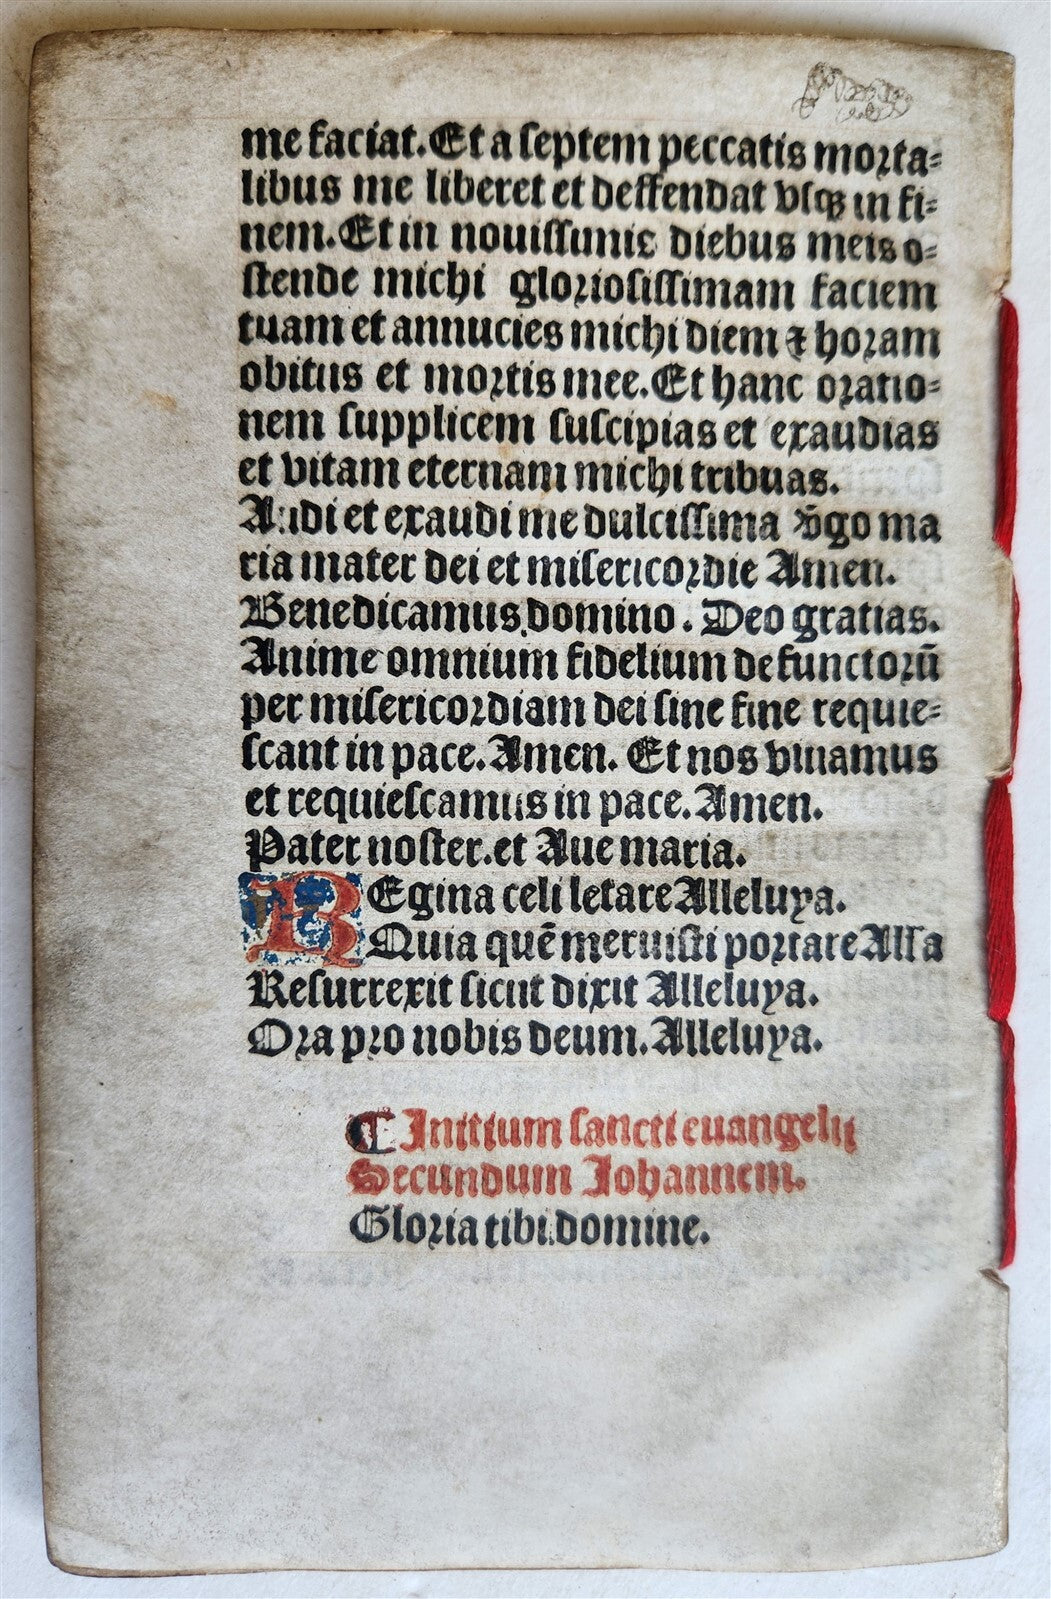 me faciat. Et a septem peccatis morta=
libus me liberet et deffendat vsqꝫ in fi=
nem. Et in nouissimis diebus meis o=
stende michi gloriosissimam faciem
tuam et annucies michi diem ⁊ horam
obitus et mortis mee. Et hanc oratio=
nem supplicem suscipias et exaudias
et vitam eternam michi tribuas.
Audi et exaudi me dulcissima v̄go ma
ria mater dei et misericordie Amen.
Benedicamus domino. Deo gratias.
Anime omnium fidelium defunctorū
per misericordiam dei sine fine requie=
scant in pace. Amen. Et nos viuamus
et requiescamus in pace. Amen.
Pater noster. et Aue maria.
REgina celi letare Alleluya.
Quia quē meruisti portare Alla
Resurrexit sicut dixit Alleluya.
Ora pro nobis deum. Alleluya.
¶ Initium sancti euangelii
Secundum Johannem.
Gloria tibi domine.